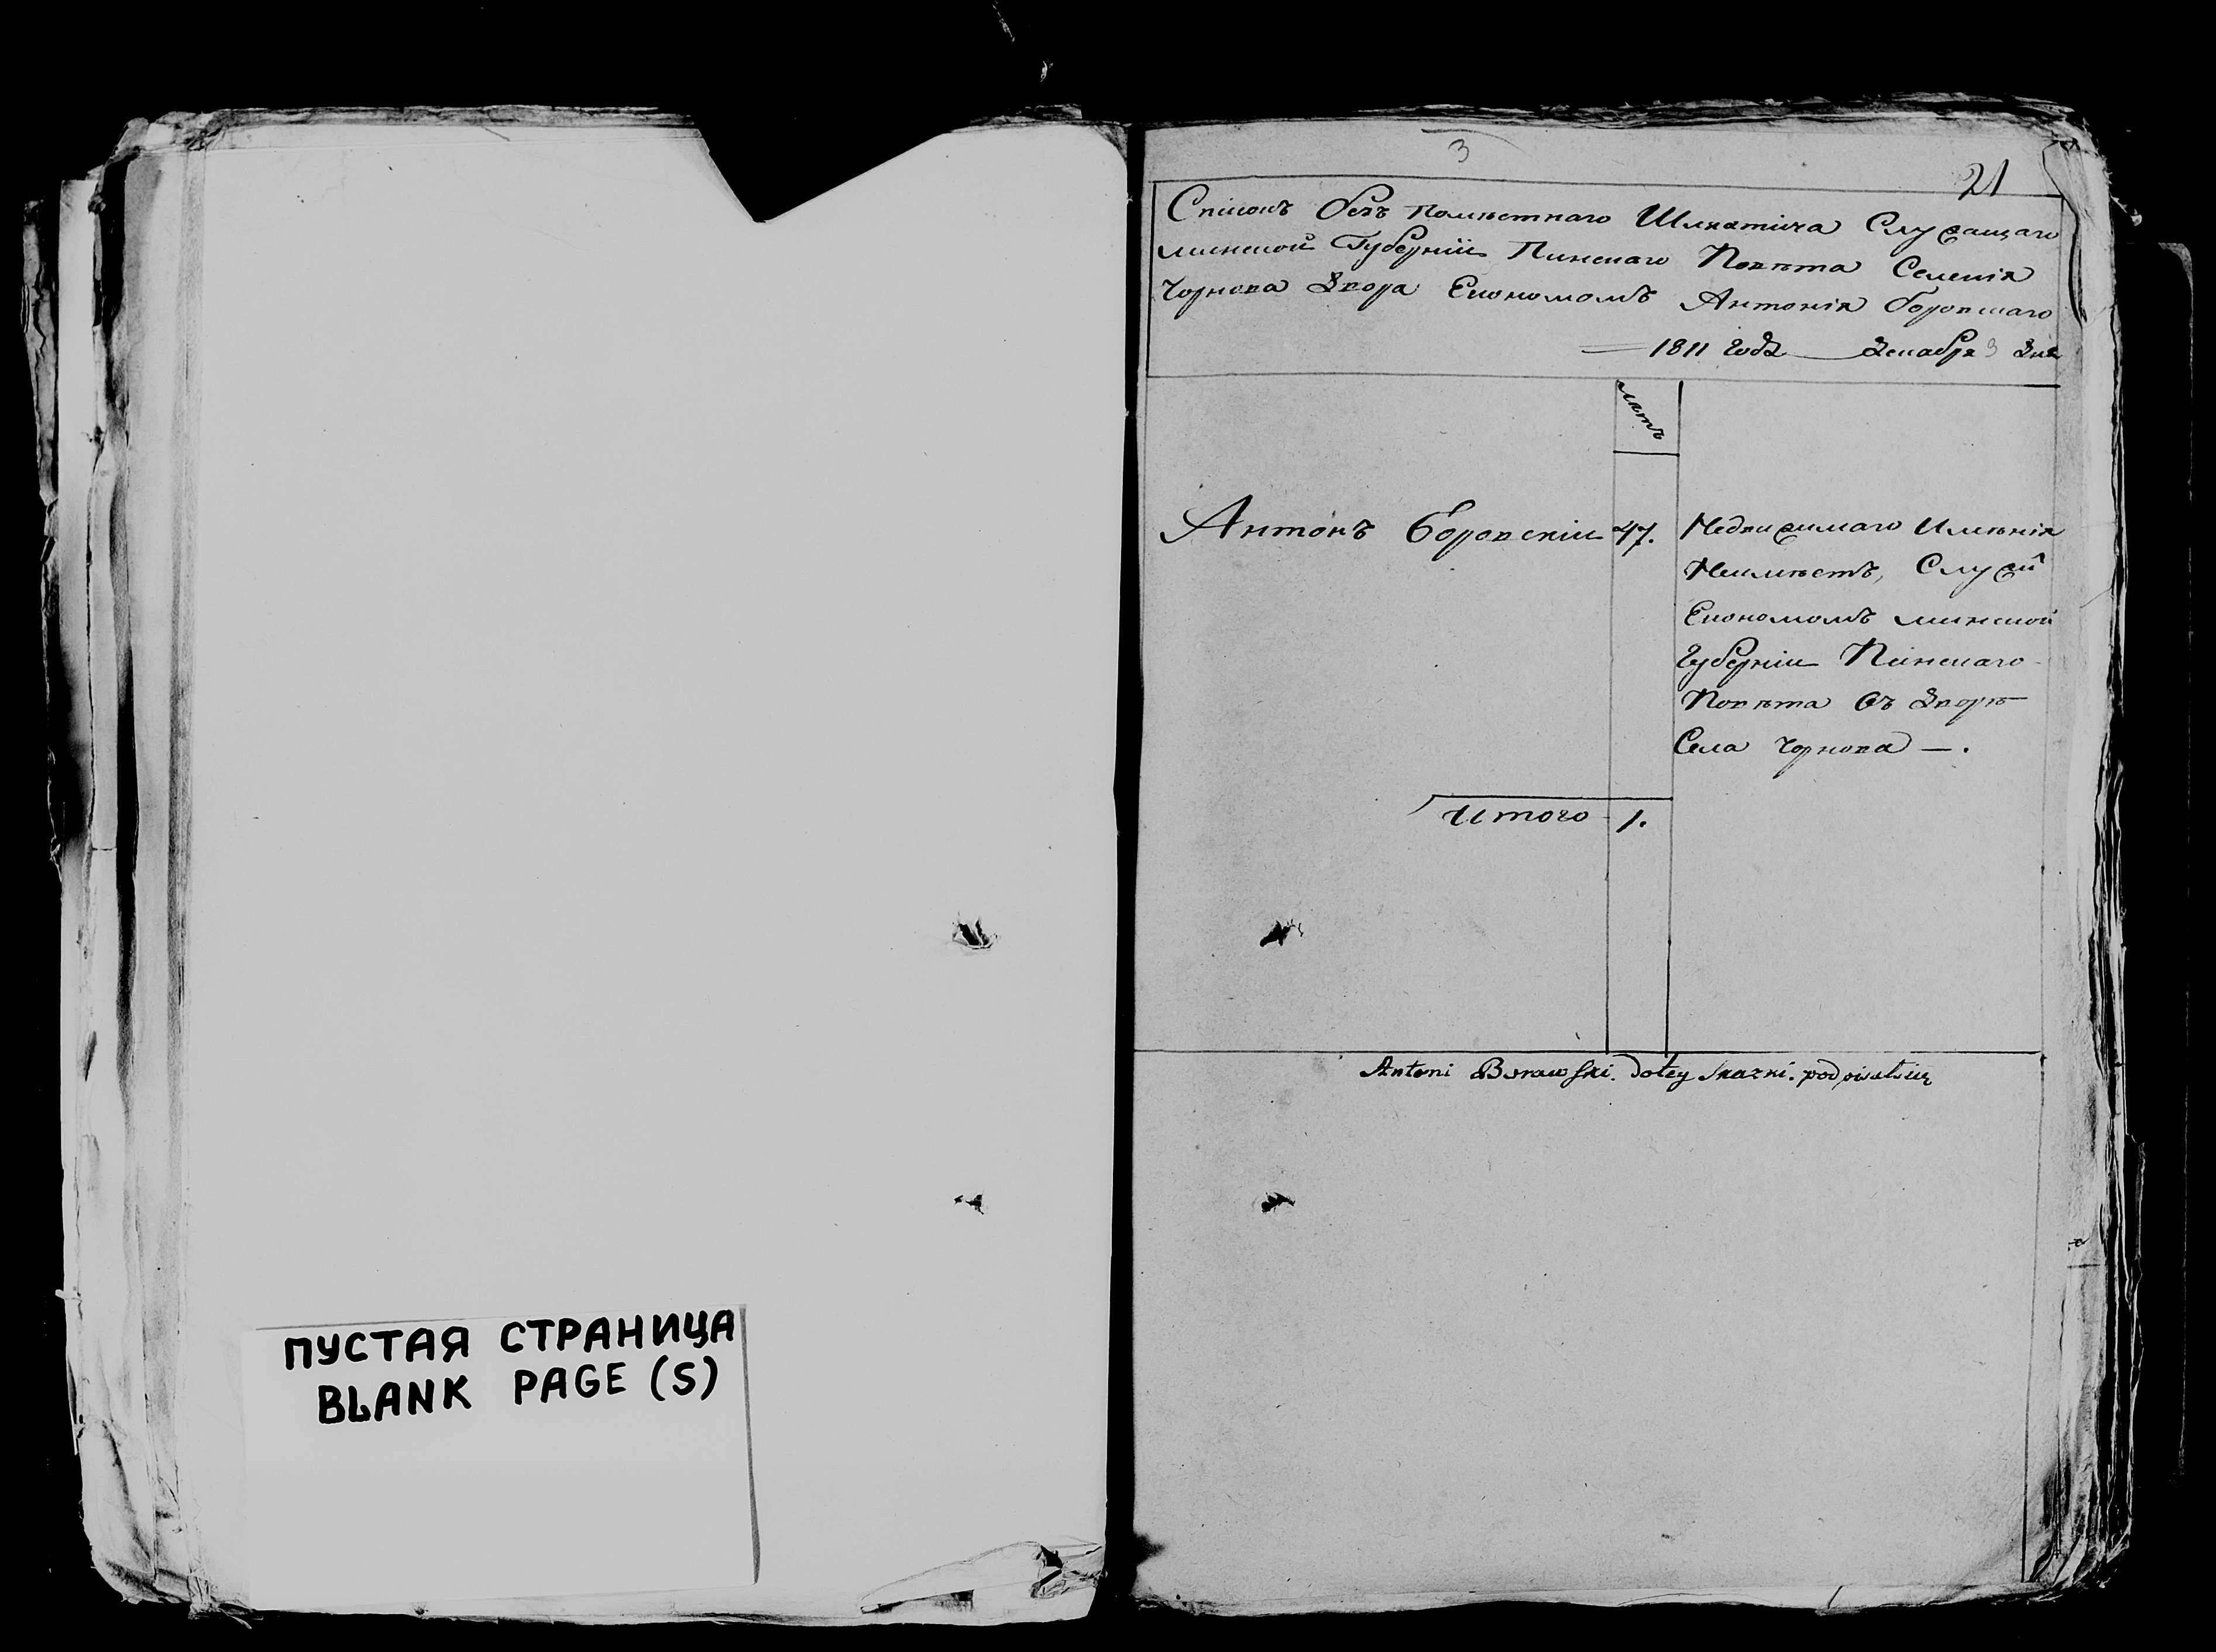 ПУСТАЯ СТРАНИЦА
BLANK PAGE (S)
3
21
Списокъ безъ помѣстнаго Шляхтича Служащаго
минской Губерніи Пинскаго Повѣта Селенія
Чорнова Двора Економомъ Антонія боровскаго
1811 года Декабря 3 дня
лѣтъ
Антонъ боровскіи 47. Недвижимаго Имѣнія
Неимѣетъ, Служи
Економомъ минской
Губерніи Пинскаго
Повѣта въ дворѣ
Села Чорнова —.
Итого 1.
Antoni Borawski. dotey skazki. podpisałsię